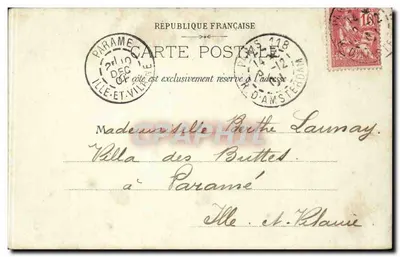 RÉPUBLIQUE FRANÇAISE
CARTE POSTALE
Ce côté est exclusivement réservé à l'adresse
PARAME
DEC
ILLE-ET-VILAINE
PARIS 118
14 12
R. D'AMSTERDAM
10
Mademoiselle Berthe Launay
Villa des Buttes
à Paramé
Ille et Vilaine